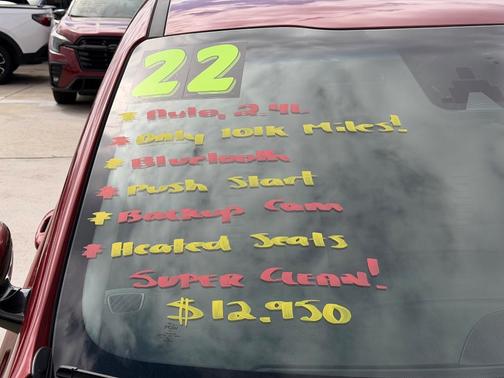 22
* Auto, 2.4L
* Only 101K Miles!
* Bluetooth
* Push Start
* Backup Cam
* Heated Seats
Super Clean!
$12,950